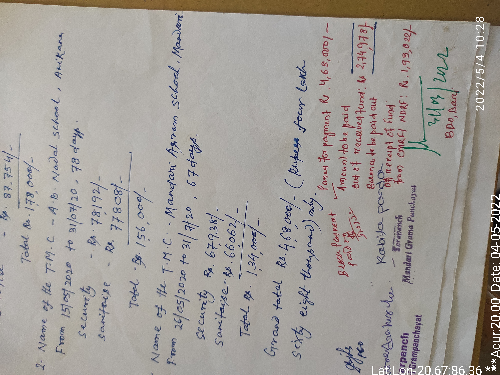 Rs 87,754/-
Total Rs. 1,73,000/-
2. Name of the T.M.C. - A.B. Nodal school,
From 15/05/2020 to 31/07/20 - 78 days.
security - Rs 78,192/-
sanitesse Rs 77,808/-
Total - Rs 1,56,000/-
Name of the T.M.C. Mandari Ashram school, Mandari
From 26/05/2020 to 31/7/20 67 days.
security Rs. 67,938/-
sanitasse Rs 66062/-
Total Rs. 1,34,000/-
Grand total Rs. 4,68,000/- (Rupees four lakh
sixty eight thousand) only
for payment Rs. 4,68,000/-
Amount to be paid
out of received fund. Rs 2,74,978/-
Balance to be paid out
of receipt of fund
from : Rs. 1,93,022/-
BDO,
Sarapanch
Mandari Grama Panchayat
Sarpanch
Grampanchayat
2022/5/4 10:28
LatLon-20.6786:86.36
**Agur2000 Date: 04-05-2022